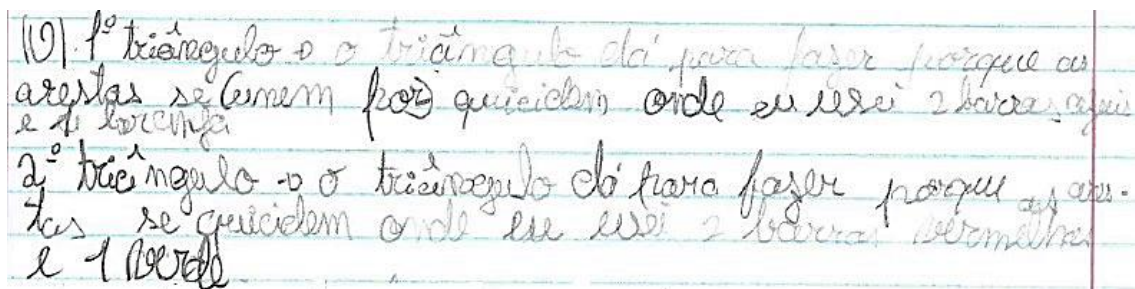 (10). 1º triângulo → o triângulo dá para fazer porque as
arestas se (unem por) quicidem onde eu usei 2 barras azuis
e 1 laranja
2º triângulo → o triângulo dá para fazer porque as ares-
tas se quicidem onde eu usei 2 barras vermelhas
e 1 verde.